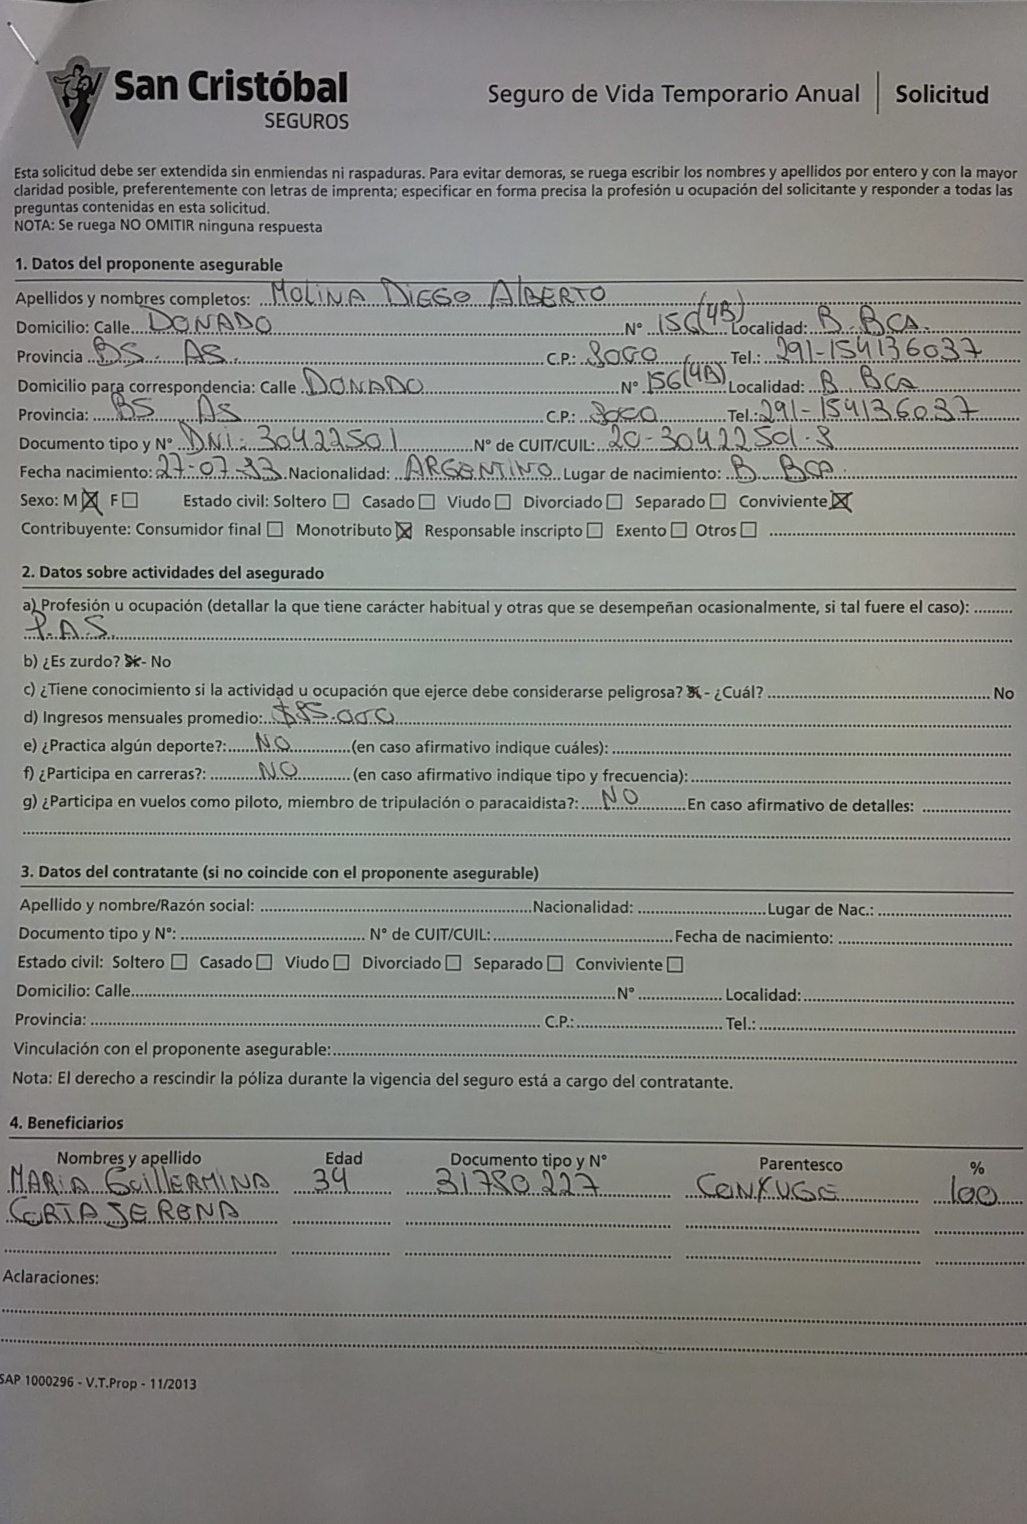 San Cristóbal
SEGUROS
Seguro de Vida Temporario Anual | Solicitud
Esta solicitud debe ser extendida sin enmiendas ni raspaduras. Para evitar demoras, se ruega escribir los nombres y apellidos por entero y con la mayor
claridad posible, preferentemente con letras de imprenta; especificar en forma precisa la profesión u ocupación del solicitante y responder a todas las
preguntas contenidas en esta solicitud.
NOTA: Se ruega NO OMITIR ninguna respuesta
1. Datos del proponente asegurable
Apellidos y nombres completos: MOLINA DIEGO ALBERTO
Domicilio: Calle DONADO N° 156 (4B) Localidad: B. BCA.
Provincia BS. AS. C.P.: 8000 Tel.: 291-154136037
Domicilio para correspondencia: Calle DONADO N° 156 (4B) Localidad: B. BCA
Provincia: BS AS C.P.: 8000 Tel.: 291-154136037
Documento tipo y N° DNI: 30422501 N° de CUIT/CUIL: 20-30422501-8
Fecha nacimiento: 27-07-83 Nacionalidad: ARGENTINO Lugar de nacimiento: B. BCA.
Sexo: M F Estado civil: Soltero Casado Viudo Divorciado Separado Conviviente
Contribuyente: Consumidor final Monotributo Responsable inscripto Exento Otros
2. Datos sobre actividades del asegurado
a) Profesión u ocupación (detallar la que tiene carácter habitual y otras que se desempeñan ocasionalmente, si tal fuere el caso):
P.A.S.
b) ¿Es zurdo? Si - No
c) ¿Tiene conocimiento si la actividad u ocupación que ejerce debe considerarse peligrosa? Si - ¿Cuál? No
d) Ingresos mensuales promedio: $85.000
e) ¿Practica algún deporte?: NO (en caso afirmativo indique cuáles):
f) ¿Participa en carreras?: NO (en caso afirmativo indique tipo y frecuencia):
g) ¿Participa en vuelos como piloto, miembro de tripulación o paracaidista?: NO En caso afirmativo de detalles:
3. Datos del contratante (si no coincide con el proponente asegurable)
Apellido y nombre/Razón social: Nacionalidad: Lugar de Nac.:
Documento tipo y N°: N° de CUIT/CUIL: Fecha de nacimiento:
Estado civil: Soltero Casado Viudo Divorciado Separado Conviviente
Domicilio: Calle N° Localidad:
Provincia: C.P.: Tel.:
Vinculación con el proponente asegurable:
Nota: El derecho a rescindir la póliza durante la vigencia del seguro está a cargo del contratante.
4. Beneficiarios
Nombres y apellido Edad Documento tipo y N° Parentesco %
MARIA GUILLERMINA 34 31780227 CONYUGE 100
CORTAJERENA
Aclaraciones:
SAP 1000296 - V.T.Prop - 11/2013